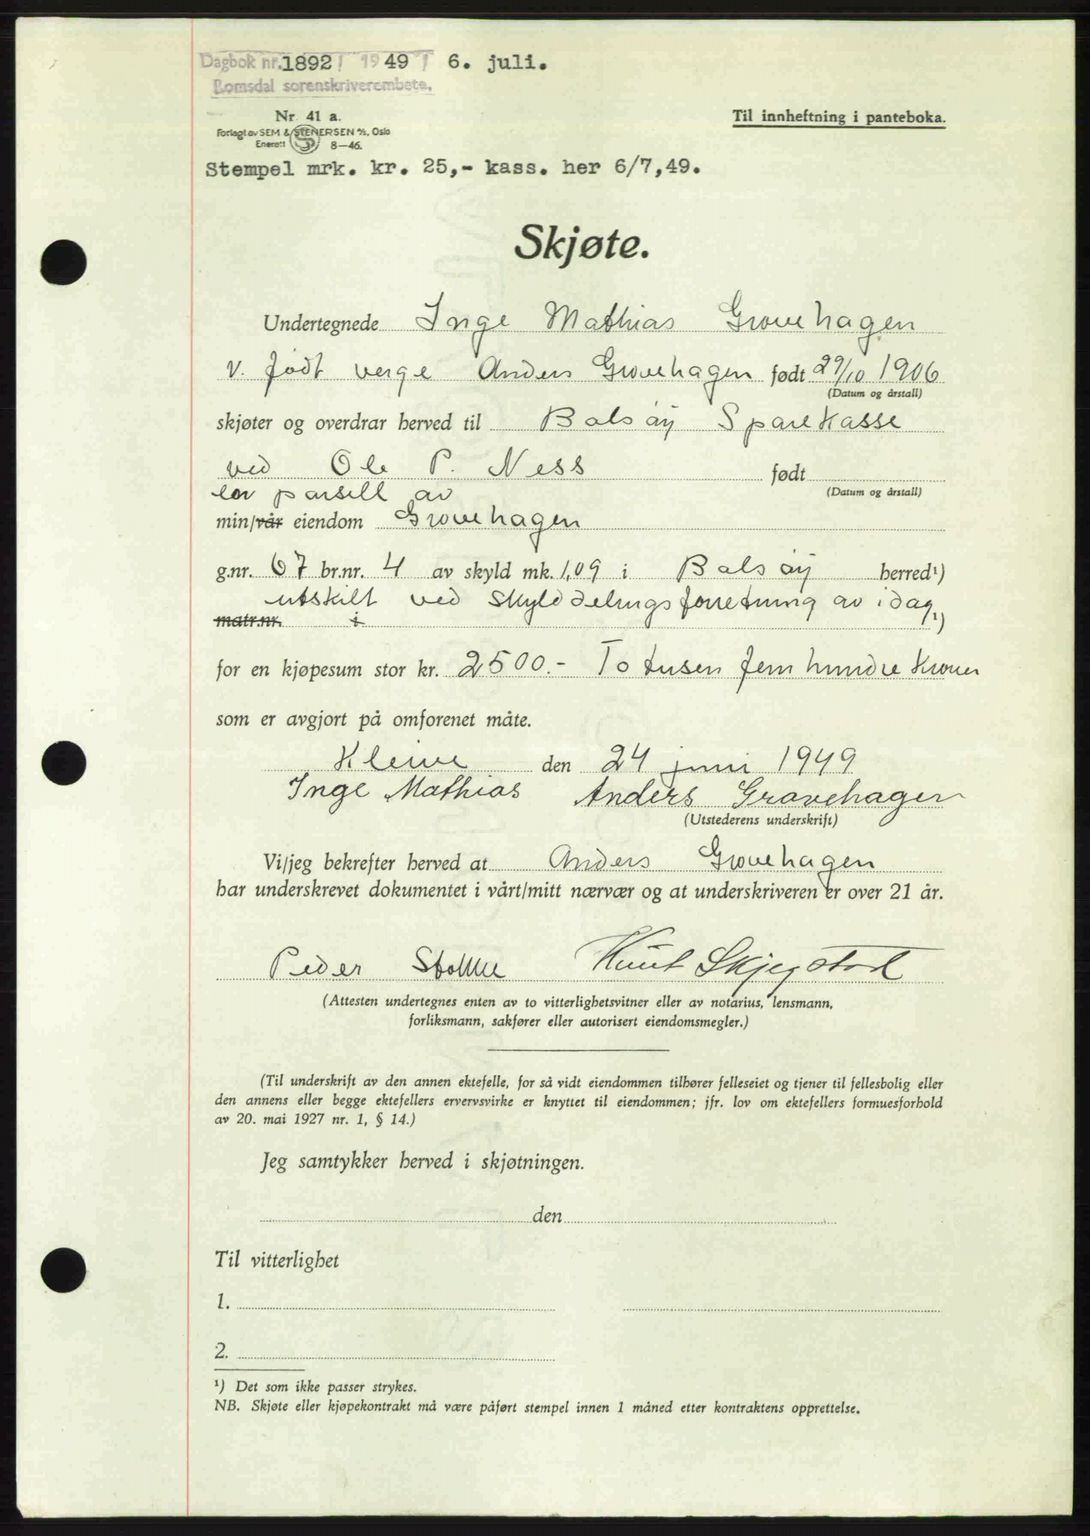 Dagbok nr. 1892 / 1949 / 6. juli.
Romsdal sorenskriverembete.
Nr. 41 a.
Til innheftning i panteboka.
Forlagt av SEM & STENERSEN A/S, Oslo
Enerett 8—46.
Stempel mrk. kr. 25,- kass. her 6/7,49.
Skjøte.
Undertegnede Inge Mathias Grovehagen
v. født verge Anders Grovehagen født 29/10 1906
(Datum og årstall)
skjøter og overdrar herved til Bolsøy Sparekasse
ved Ole P. Ness født
(Datum og årstall)
en parsell av
min/vår eiendom Grovehagen
g.nr. 67 br.nr. 4 av skyld mk. 1,09 i Bolsøy herred¹)
utskilt ved skylddelingsforretning av i dag
matr.nr. i ¹)
for en kjøpesum stor kr. 2500.- To tusen fem hundre Kroner
som er avgjort på omforenet måte.
Kleive den 24 juni 1949
Inge Mathias Anders Gravehagen
(Utstederens underskrift)
Vi/jeg bekrefter herved at Anders Grovehagen
har underskrevet dokumentet i vårt/mitt nærvær og at underskriveren er over 21 år.
Peder Stokke Knut Skjegstad
(Attesten undertegnes enten av to vitterlighetsvitner eller av notarius, lensmann,
forliksmann, sakfører eller autorisert eiendomsmegler.)
(Til underskrift av den annen ektefelle, for så vidt eiendommen tilhører felleseiet og tjener til fellesbolig eller
den annens eller begge ektefellers ervervsvirke er knyttet til eiendommen; jfr. lov om ektefellers formuesforhold
av 20. mai 1927 nr. 1, § 14.)
Jeg samtykker herved i skjøtningen.
den
Til vitterlighet
1.
2.
¹) Det som ikke passer strykes.
NB. Skjøte eller kjøpekontrakt må være påført stempel innen 1 måned etter kontraktens opprettelse.